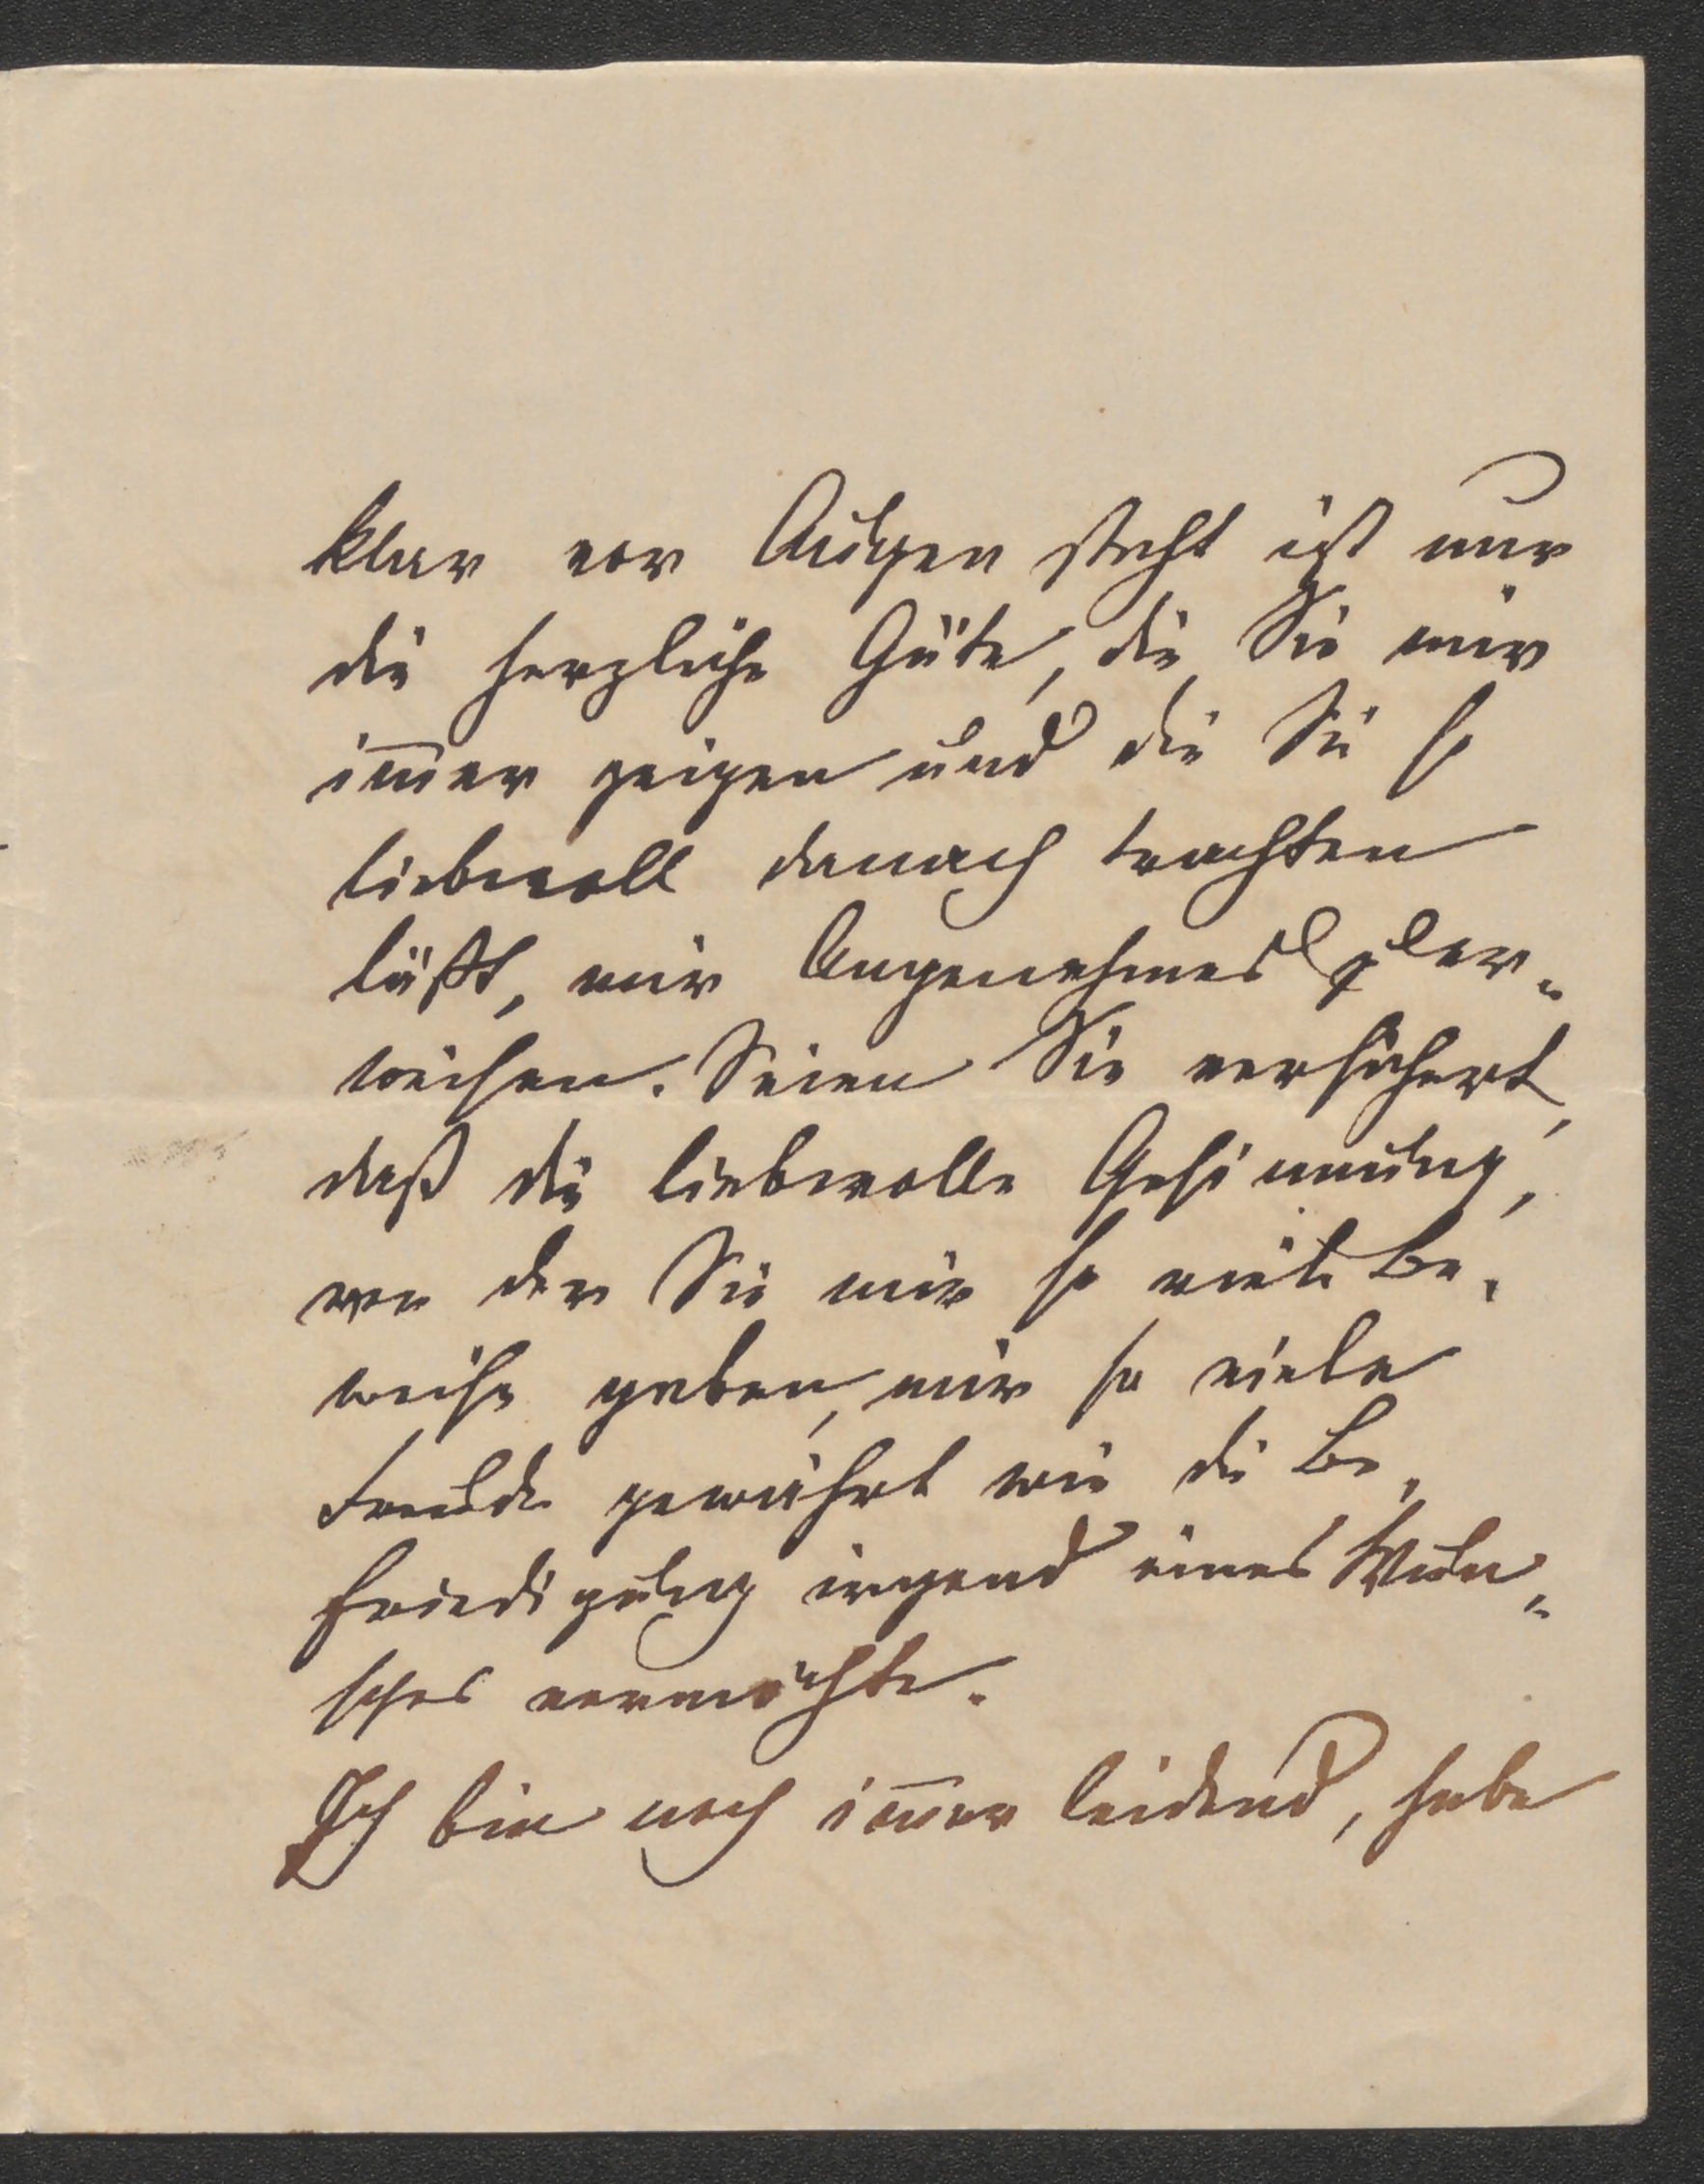 klar vor Augen steht ist nur
die herzliche Güte, die Sie mir
immer zeigen und die Sie so
liebevoll danach trachten
läßt, mir Angenehmes zu er-
weisen. Seien Sie versichert,
daß die liebevolle Gesinnung,
von der Sie mir so viele Be-
weise geben, mir so viele
Freude gewährt wie die Be-
friedigung irgend eines Wun-
sches vermöchte.
Ich bin noch immer leidend, habe